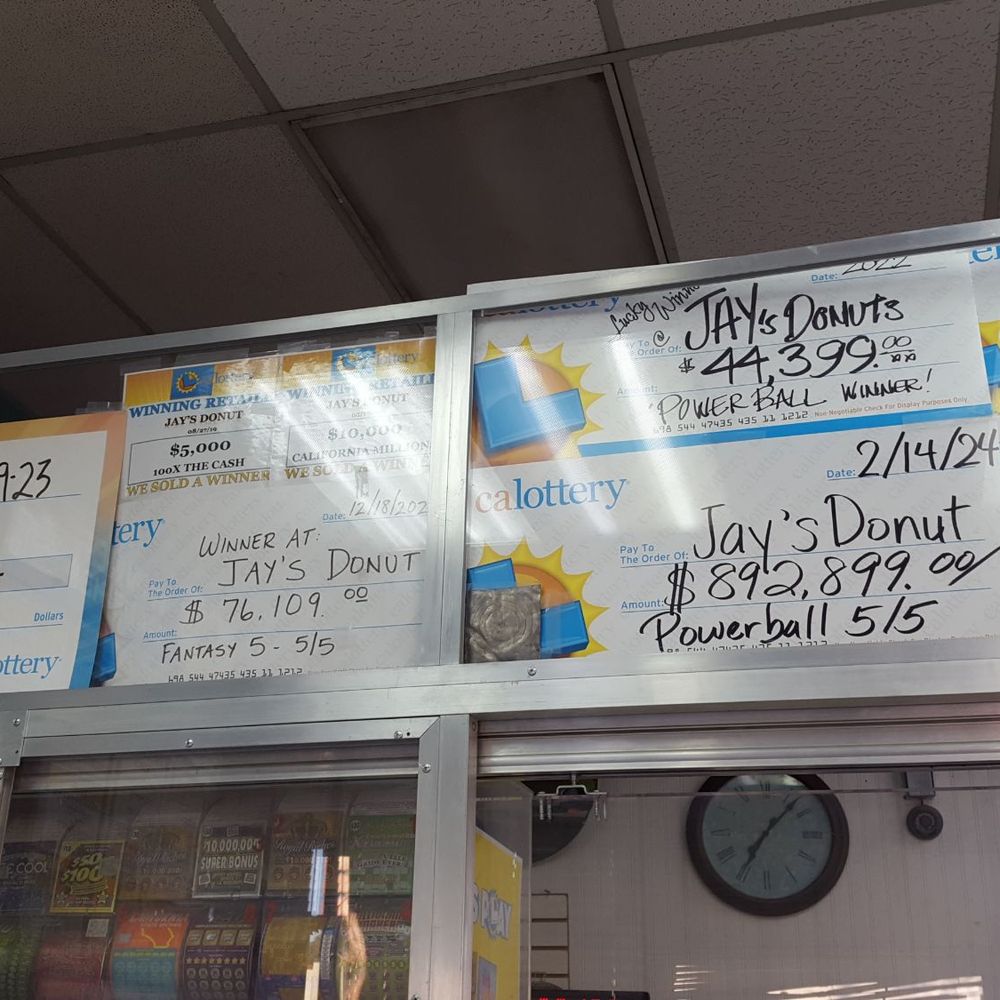 9.23
Dollars
ottery
lottery
WINNING RETAIL
JAY'S DONUT
08/27/19
$5,000
100X THE CASH
WE SOLD A WINNER
lottery
WINNING RETAIL
JAY'S DONUT
$10,000
CALIFORNIA MILLION
WE SOLD A WINNE
tery
Date: 12/18/202
WINNER AT:
Pay To
The Order Of: JAY'S DONUT
$ 76,109.00
Amount:
FANTASY 5 - 5/5
698 544 47435 435 11 1212
Date: 2022
Lucky Winn
@
Pay To
The Order Of: JAY's DONUTS
$ 44,399.00 xx
Amount:
POWER BALL WINNER!
698 544 47435 435 11 1212 Non Negotiable Check For Display Purposes Only
calottery
Date: 2/14/24
Pay To
The Order Of: Jay's Donut
Amount: $892,899.00/
Powerball 5/5
COOL
$50
$100
$10,000,000
SUPER BONUS
PLAY